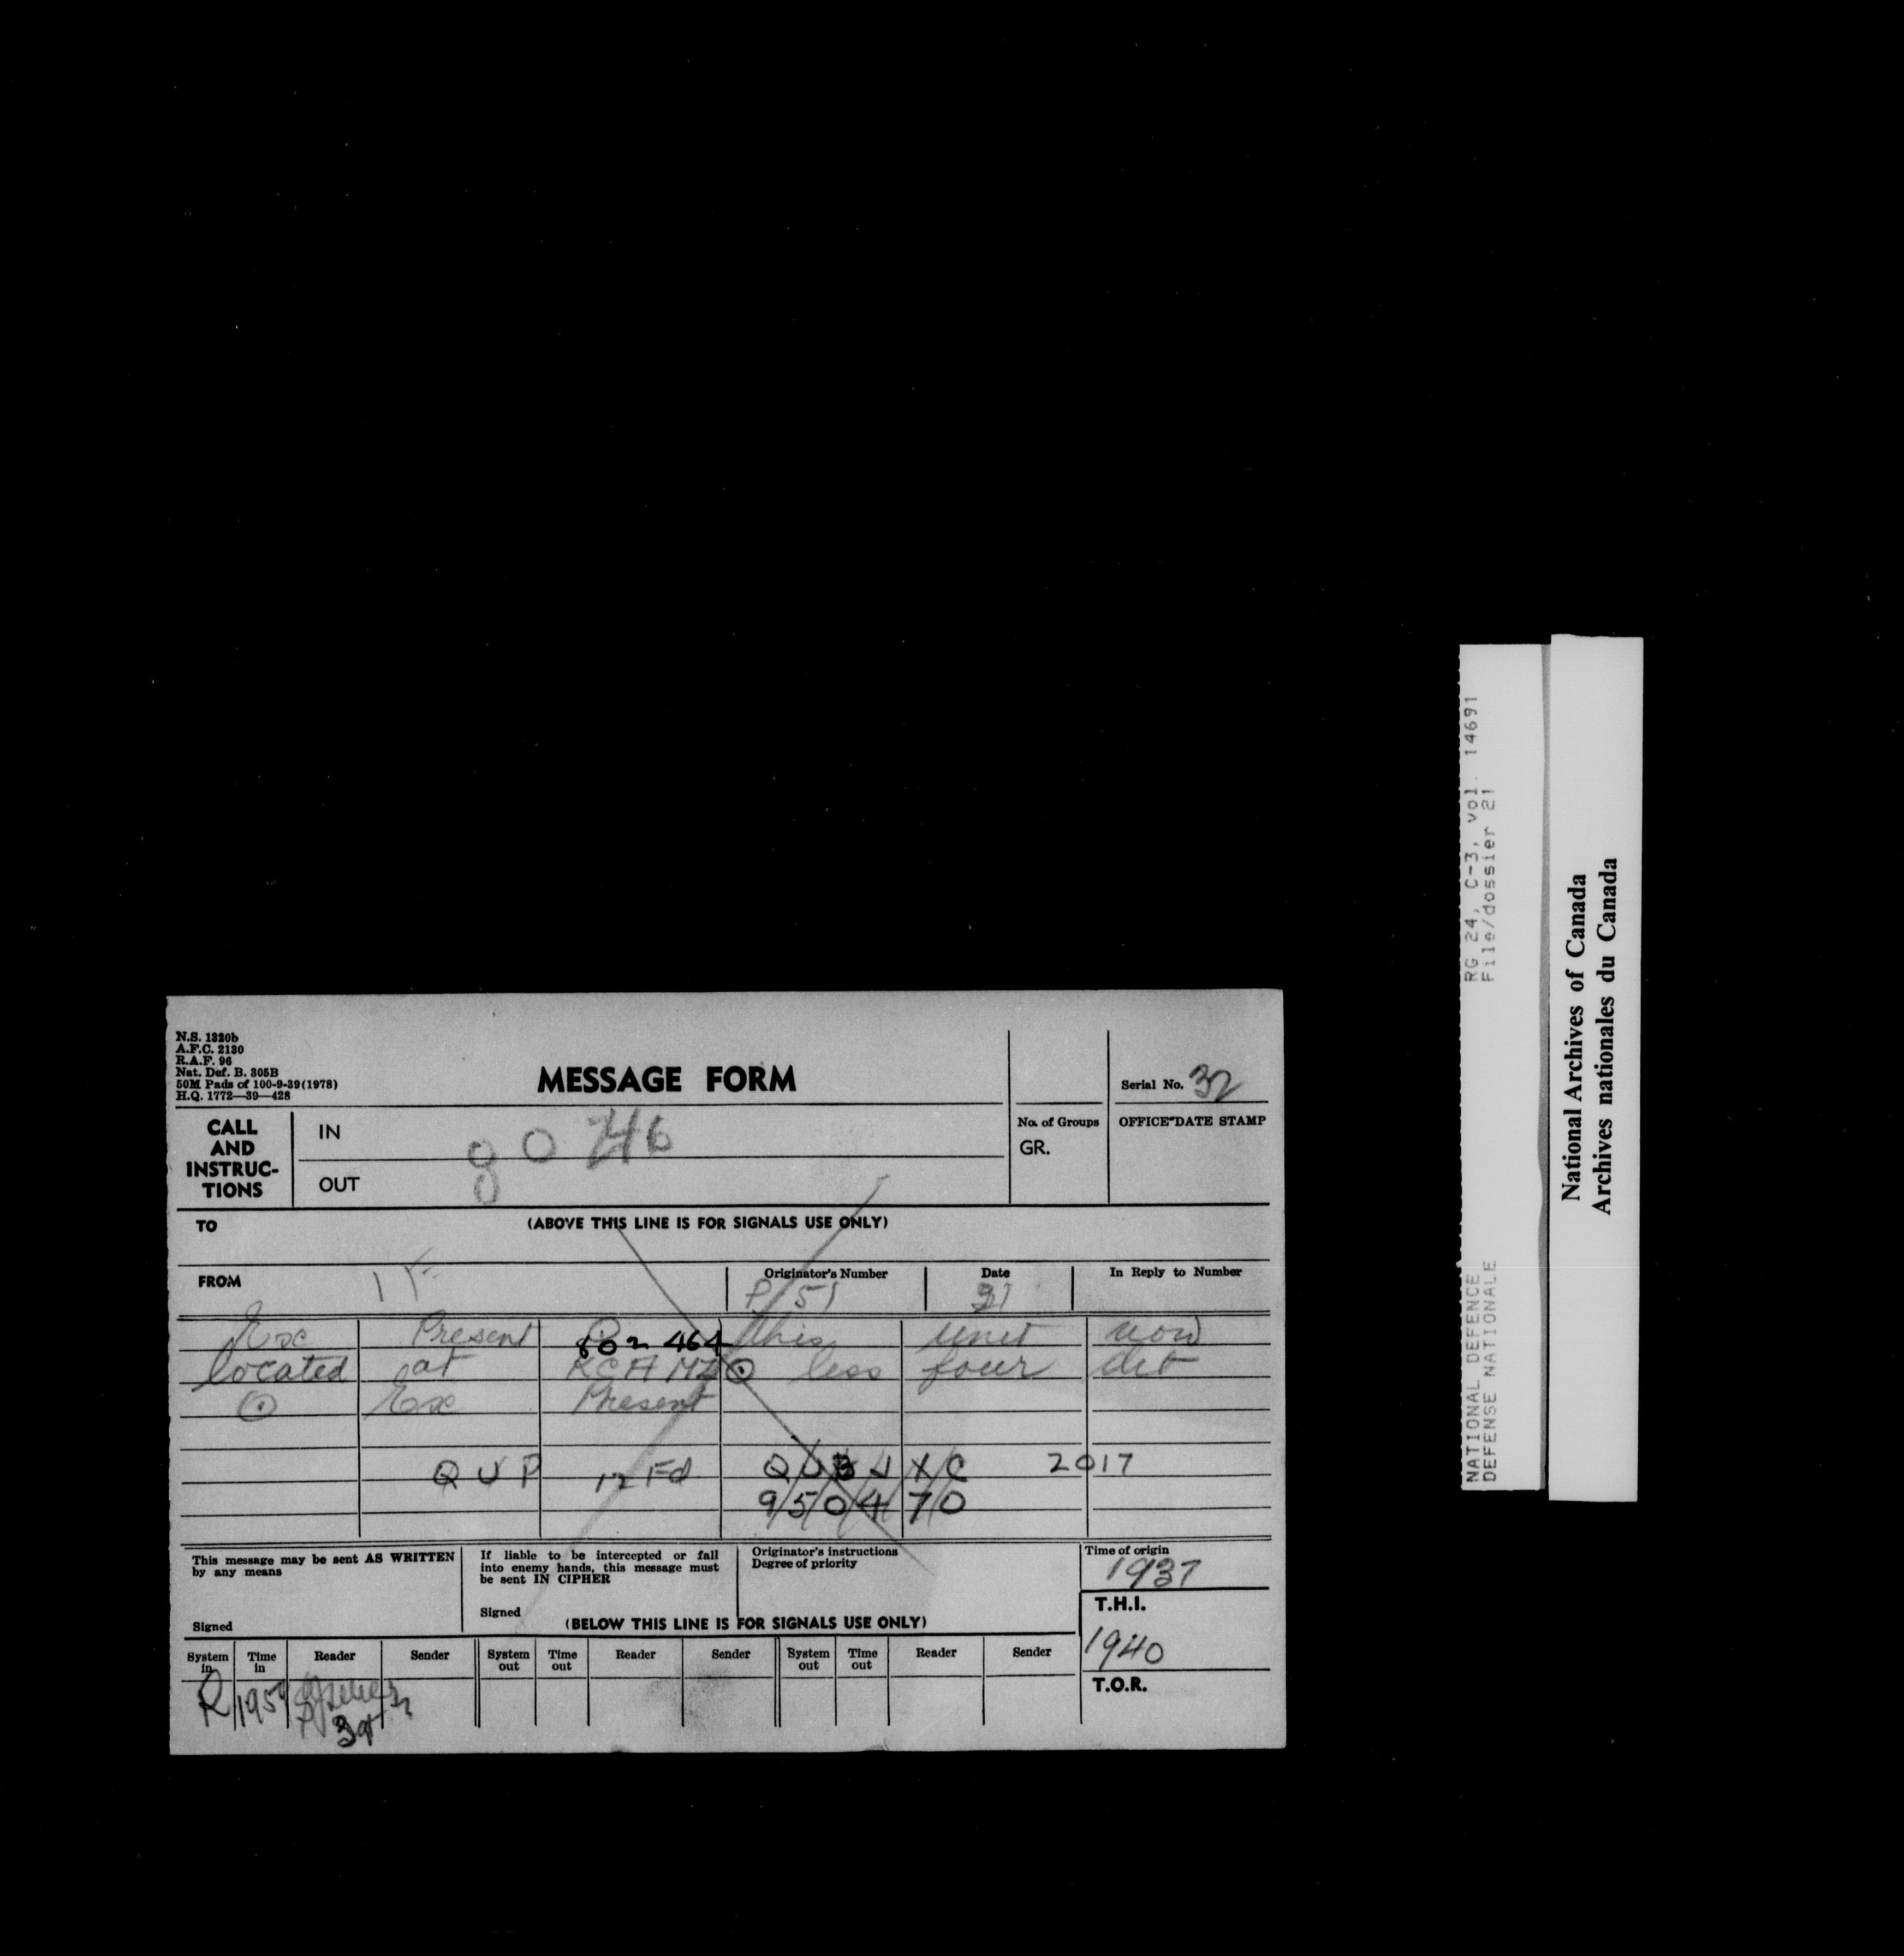 N.S. 1320b
A.F.C. 2130
R.A.F. 96
Nat. Def. B. 305B
50M Pads of 100-9-39(1978)
H.Q. 1772—39—428
MESSAGE FORM
Serial No. 32
CALL AND INSTRUC-TIONS
IN
OUT
8046
No. of Groups
GR.
OFFICE DATE STAMP
TO
(ABOVE THIS LINE IS FOR SIGNALS USE ONLY)
FROM
Originator's Number
P/51
Date
31
In Reply to Number
Exc Present 464 this unit now
located at less four det
⊙ Exc Present
QUP 12 Fd Q/U/B/J/X/C 2017
9/5/0/4/7/0
This message may be sent AS WRITTEN
by any means
Signed
If liable to be intercepted or fall
into enemy hands, this message must
be sent IN CIPHER
Signed
Originator's instructions
Degree of priority
Time of origin
1937
T.H.I.
1940
T.O.R.
(BELOW THIS LINE IS FOR SIGNALS USE ONLY)
System in Time in Reader Sender System out Time out Reader Sender System out Time out Reader Sender
R
RG 24, C-3, vol. 14691
File/dossier 21
NATIONAL DEFENCE
DEFENSE NATIONALE
National Archives of Canada
Archives nationales du Canada